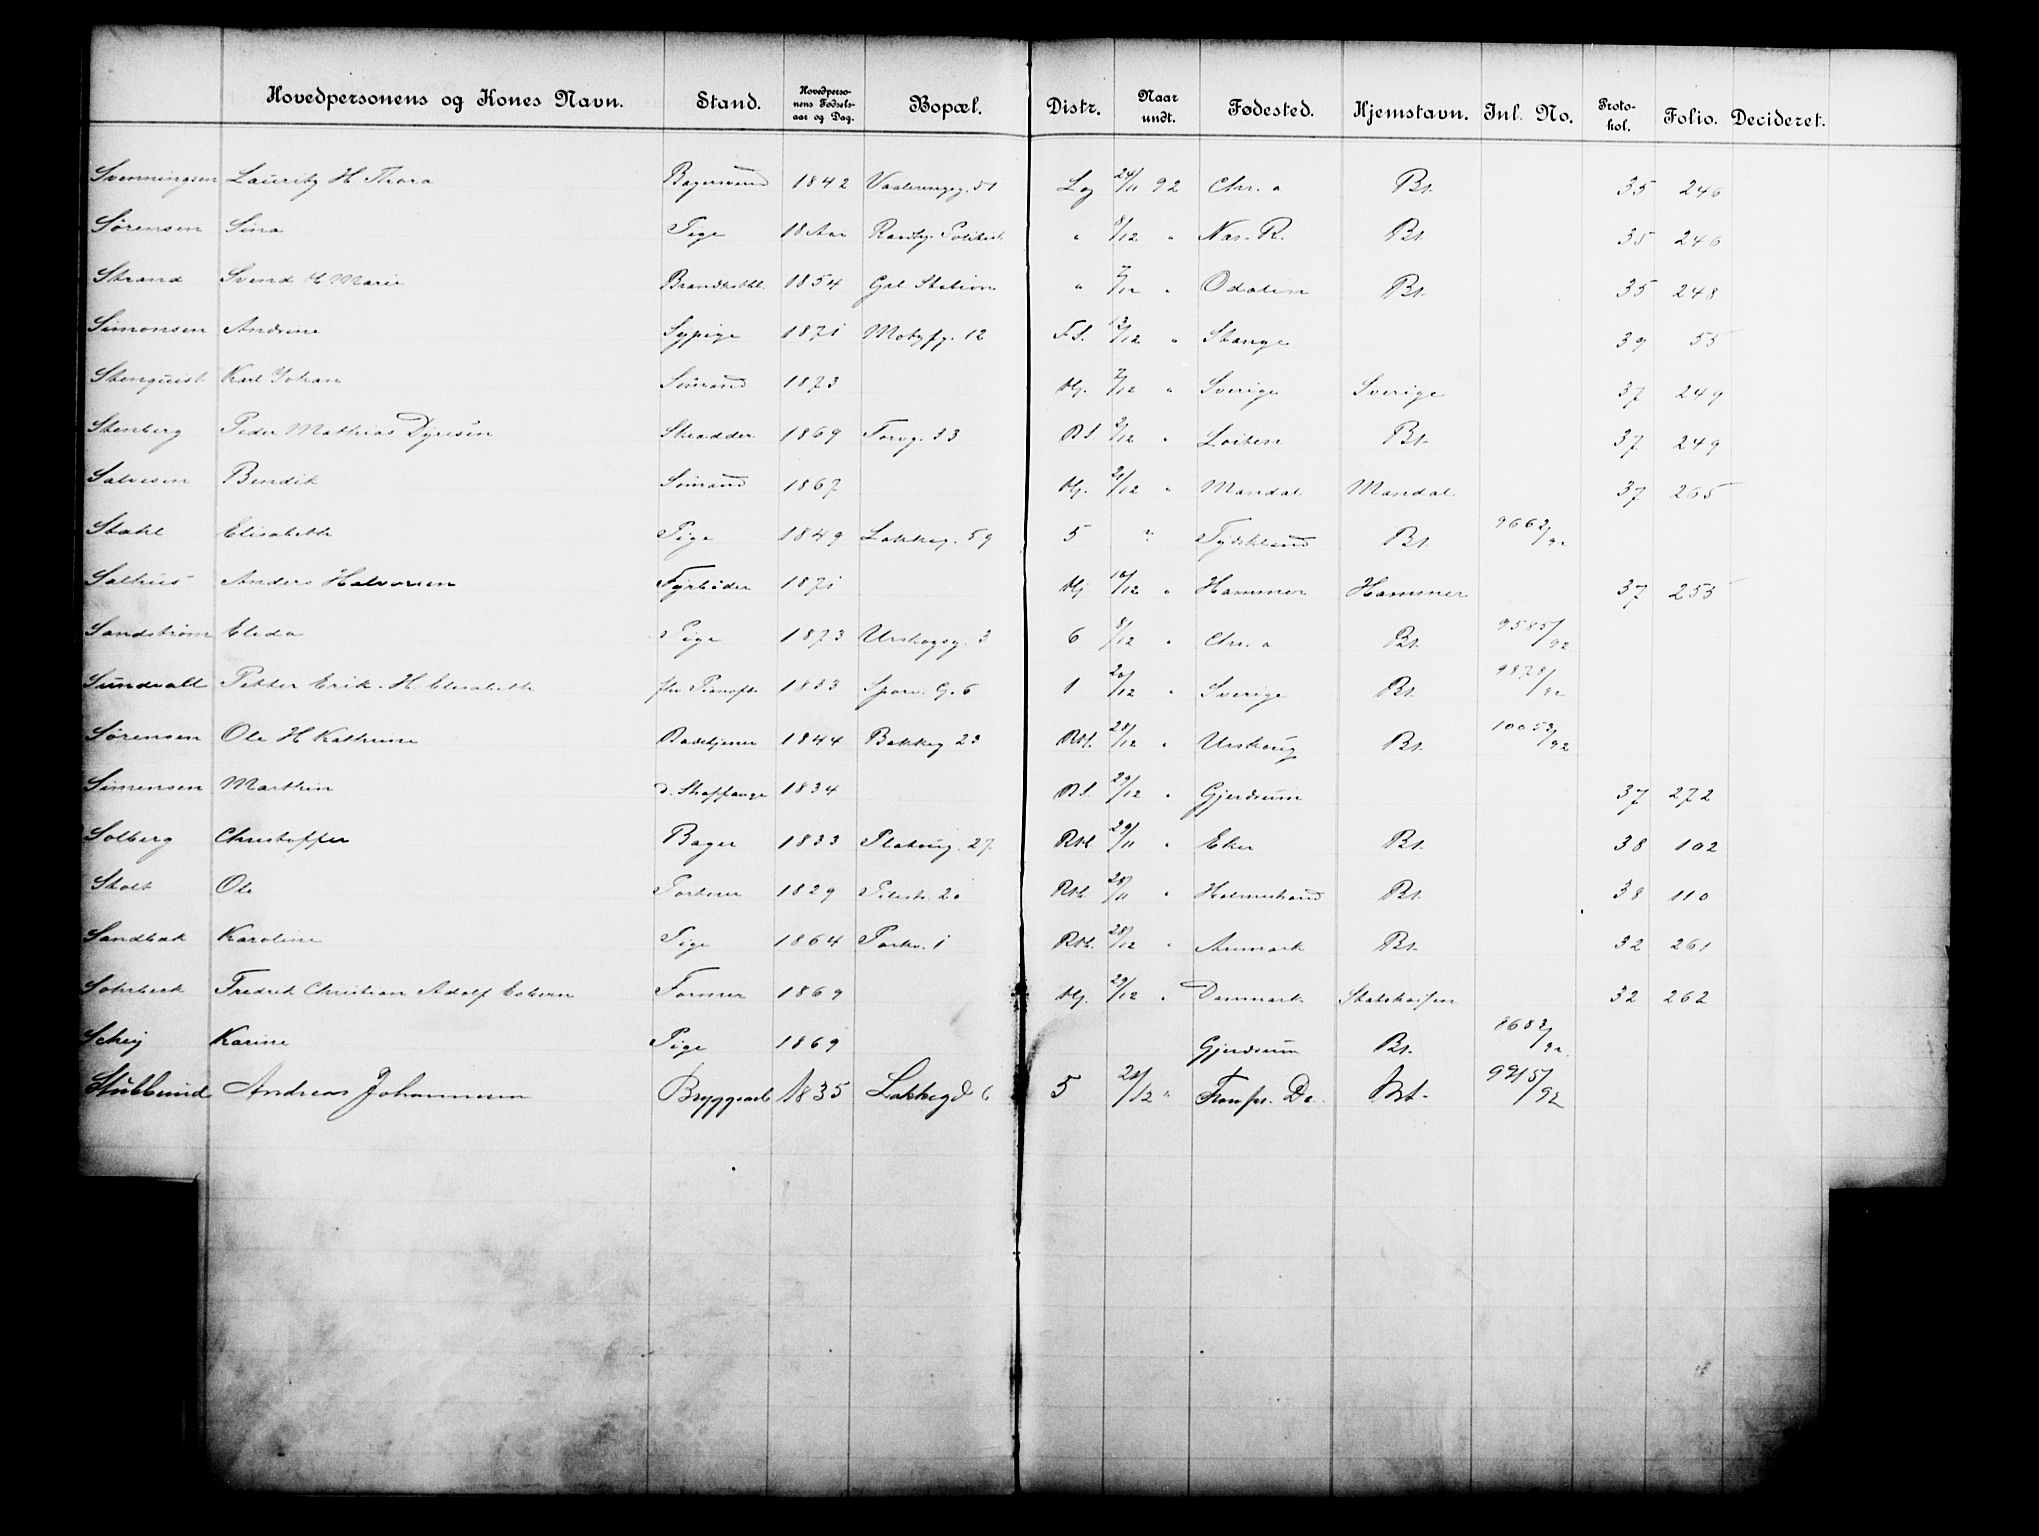 Hovedpersonens og Kones Navn. Stand. Hovedperso-nens Fødsels-aar og Dag. Bopæl. Distr. Naar undt. Fødested. Hjemstavn. Inl. No. Proto-kol. Folio. Decideret.
Svenningsen Lauritz H Thora Bagersvend 1842 Vaalerengsg. 51 Lag 24/11 92 Chr.a Bt. 35 246
Sørensen Sina Pige 18 Aar " 8/12 " Nas. R. Bt. 35 246
Strand Svend H Marie 1854 Grl. Station " 7/12 " Odalen Bt. 35 248
Simonsen Andrine Sypige 1871 Motzfg. 12 F.S. 12/12 " Stange 39 55
Stenquist Karl Johan Sømand 1873 Hj. 7/12 " Sverige Sverige 37 249
Stenberg Peder Mathias Dyresen Skrædder 1869 Torvg. 33 BS 9/12 " Løiten Bt. 37 249
Salvesen Bendik Sømand 1867 Hj. 21/12 " Mandal Mandal 37 265
Stahl Elisabeth Pige 1849 Lakkeg. 59 5 " Tydskland Bt. 9662/92
Salhus Anders Halvorsen Fyrbøder 1871 Hj 10/12 " Hammer Hammer 37 253
Sandstrøm Elida Pige 1873 Urskogsg. 3 6 8/12 " Chr.a Bt. 9585/92
Sundvall Petter Erik. H. Elisabeth 1833 Sporv. G. 6 1 20/12 " Sverige Bt. 9878/92
Sørensen Ole H Kathrine Badetjener 1844 Bakkeg 23 Rtl. 28/12 " Urskoug Bt. 10053/92
Simensen Marthin d. Straffange 1834 BS. 29/12 " Gjerdrum 37 272
Solberg Christoffer Bager 1833 Platoug. 27 Rtl 29/11 " Eker Bt. 38 102
Stolt Ole Portner 1829 Pilestr. 20 Rtl. 28/11 " Holmestrand Bt. 38 110
Sandbak Karoline Pige 1864 Parkv. 1 Rtl. 28/12 " Aremark Bt. 32 261
Sohrbeck Fredrik Christian Adolf Esbern Former 1869 Hj. 29/12 " Danmark 32 262
Schej Karine Pige 1869 Gjerdrum Bt. 8682/92
Stubberud Andreas Johannesen Bryggearb 1835 Lakkegd 6 5 21/12 " Bt. 9915/92